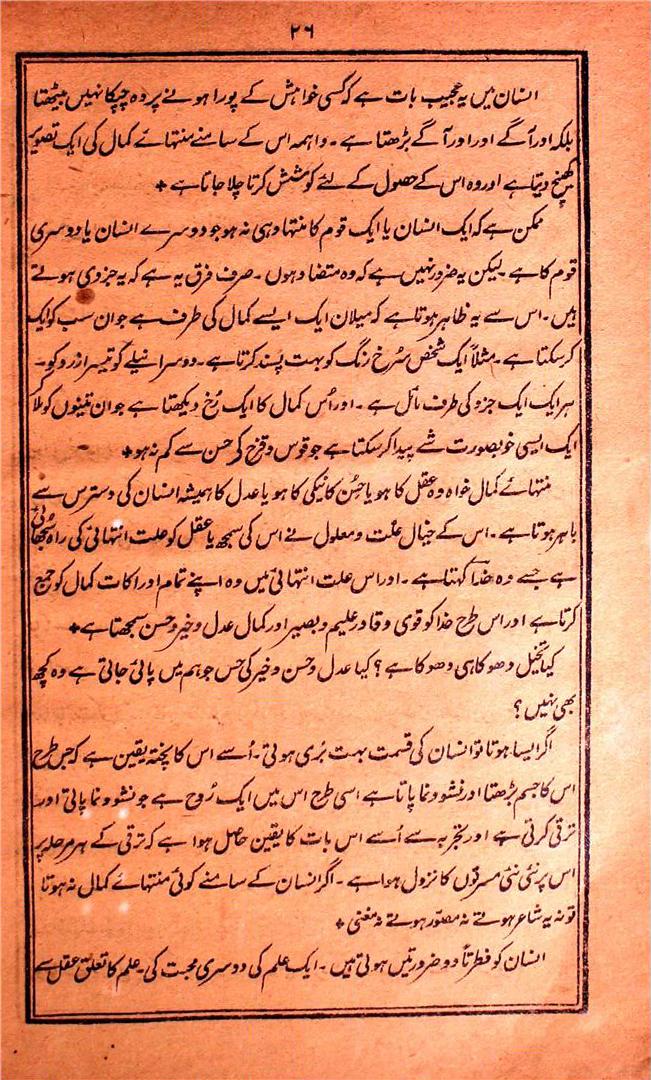 ۲۶
انسان میں یہ عجیب بات ہے کہ کسی خواہش کے پورا ہونے پر وہ چپکا نہیں بیٹھتا
بلکہ اور آگے اور اور آگے بڑھتا ہے ۔ واہمہ اس کے سامنے منتہائے کمال کی ایک تصویر
کھینچ دیتا ہے اور وہ اس کے حصول کے لئے کوشش کرتا چلا جاتا ہے +
ممکن ہے کہ ایک انسان یا ایک قوم کا منتہا وہی نہ ہو جو دوسرے انسان یا دوسری
قوم کا ہے ۔ لیکن یہ ضرور نہیں ہے کہ وہ متضاد ہوں ۔ صرف فرق یہ ہے کہ یہ جزوی ہوتے
ہیں ۔ اس سے یہ ظاہر ہوتا ہے کہ میلان ایک ایسے کمال کی طرف ہے جو ان سب کو ایک
کر سکتا ہے ۔ مثلاً ایک شخص سُرخ رنگ کو بہت پسند کرتا ہے ۔ دوسرا نیلے کو تیسرا زرد کو ۔
ہر ایک ایک جزو کی طرف مائل ہے ۔ اور اُس کمال کا ایک رُخ دیکھتا ہے جو ان تینوں کو ملا
ایک ایسی خوبصورت شے پیدا کر سکتا ہے جو قوس و قزح کی حسن سے کم نہ ہو +
منتہائے کمال خواہ وہ عقل کا ہو یا حُسن کا نیکی کا ہو یا عدل کا ہمیشہ انسان کی دسترس سے
باہر ہوتا ہے ۔ اس کے خیال علّت و معلول نے اس کی سمجھ یا عقل کو علت انتہائی کی راہ سُجھائی
ہے جسے وہ خدا کہتا ہے ۔ اور اس علت انتہائی میں وہ اپنے تمام ادراکات کمال کو جمع
کرتا ہے اور اس طرح خدا کو قوی و قادر علیم و بصیر اور کمال عدل و خیر و حسن سمجھتا ہے +
کیا تخیل دھوکا ہی دھوکا ہے ؟ کیا عدل و حسن و خیر کی حس جو ہم میں پائی جاتی ہے وہ کچھ
بھی نہیں ؟
اگر ایسا ہوتا تو انسان کی قسمت بہت بُری ہوتی ۔ اُسے اس کا پختہ یقین ہے کہ جس طرح
اس کا جسم بڑھتا اور نشو و نما پاتا ہے اسی طرح اس میں ایک رُوح ہے جو نشو و نما پاتی اور
ترقی کرتی ہے اور تجربہ سے اُسے اس بات کا یقین حاصل ہوا ہے کہ ترقی کے ہر مرحلہ پر
اس پر نئی نئی مسرتوں کا نزول ہوا ہے ۔ اگر انسان کے سامنے کوئی منتہائے کمال نہ ہوتا
تو نہ یہ شاعر ہوتے نہ مصوّر ہوتے نہ مغنی +
انسان کو فطرتاً دو ضرورتیں ہوتی ہیں ۔ ایک علم کی دوسری محبت کی ۔ علم کا تعلق عقل سے